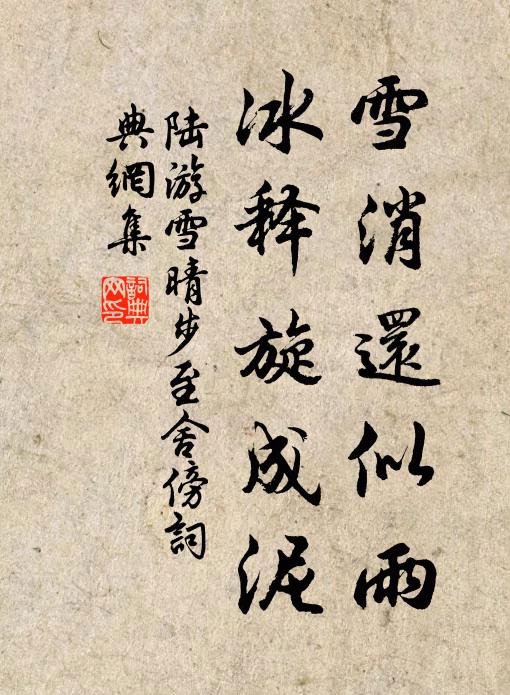 雪消還似雨
冰释旋成泥
陆游雪晴步至舍傍詞
典網集
詞典網印